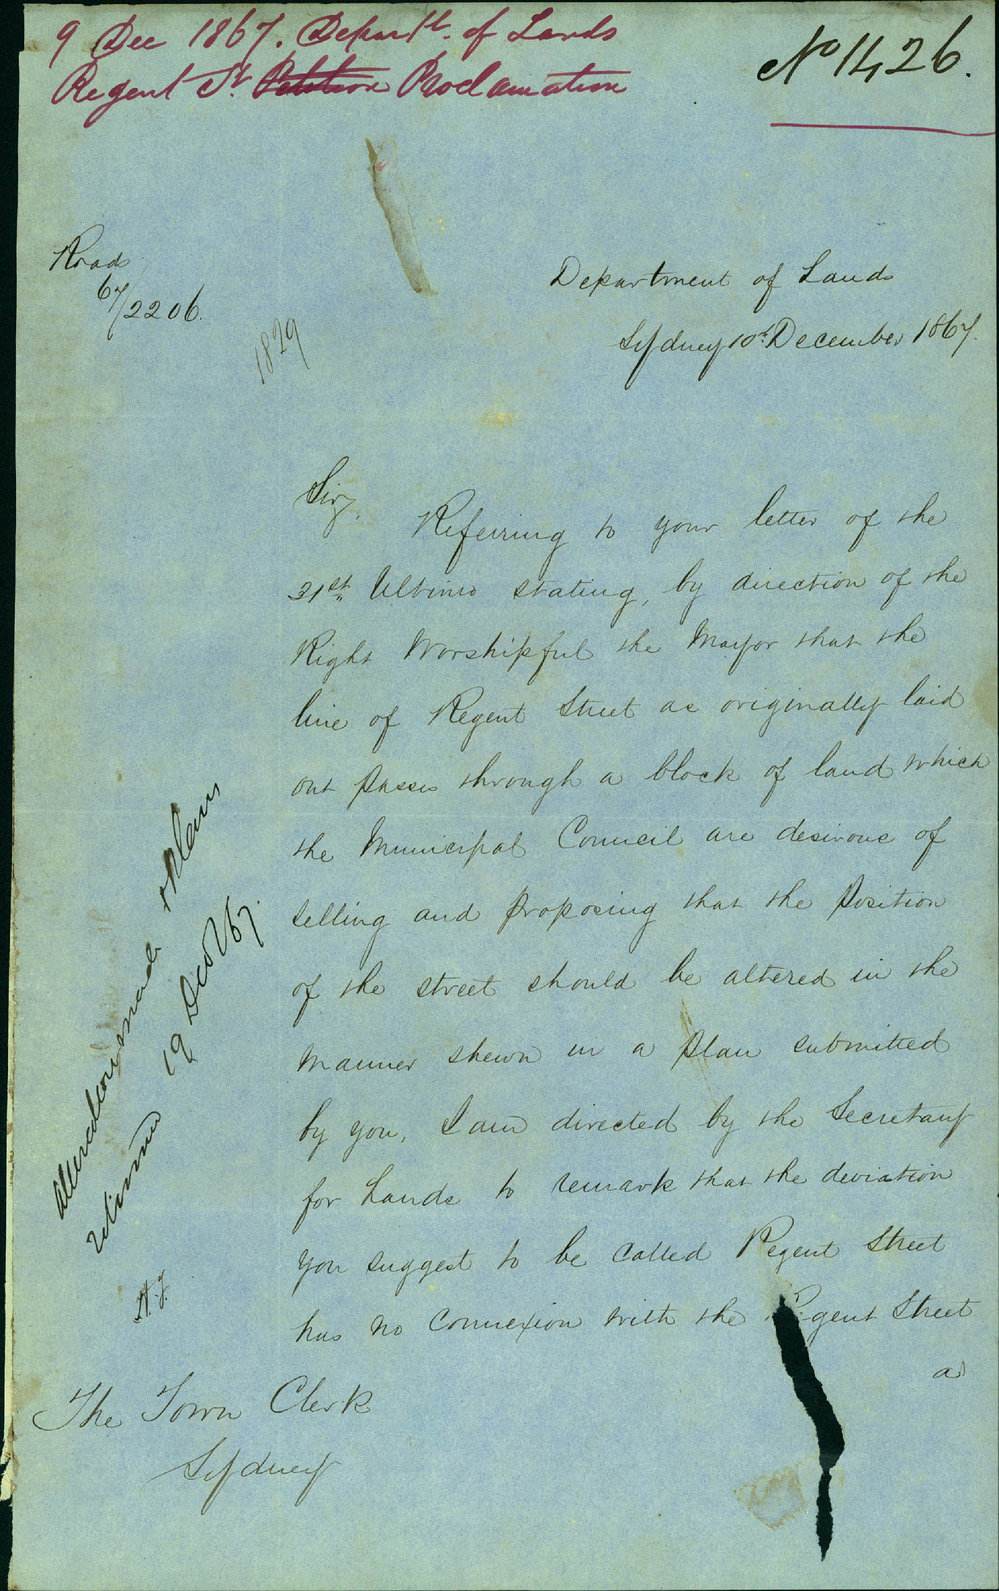 9 Dec 1867. Depart<sup>t</sup>. of Lands
Regent St Petition Proclamation
No 1426.
Roads
67/2206.
1829
Department of Lands
Sydney 10th December 1867.
Sir,
Referring to your letter of the
31st Ultimo stating, by direction of the
Right Worshipful the Mayor that the
line of Regent Street as originally laid
out passes through a block of land which
the Municipal Council are desirous of
selling and proposing that the position
of the street should be altered in the
manner shewn in a plan submitted
by you, I am directed by the Secretary
for Lands to remark that the deviation
you suggest to be called Regent Street
has no connexion with the Regent Street
as
Alteration made & Plans
returned 19 Dec 1867.
The Town Clerk
Sydney